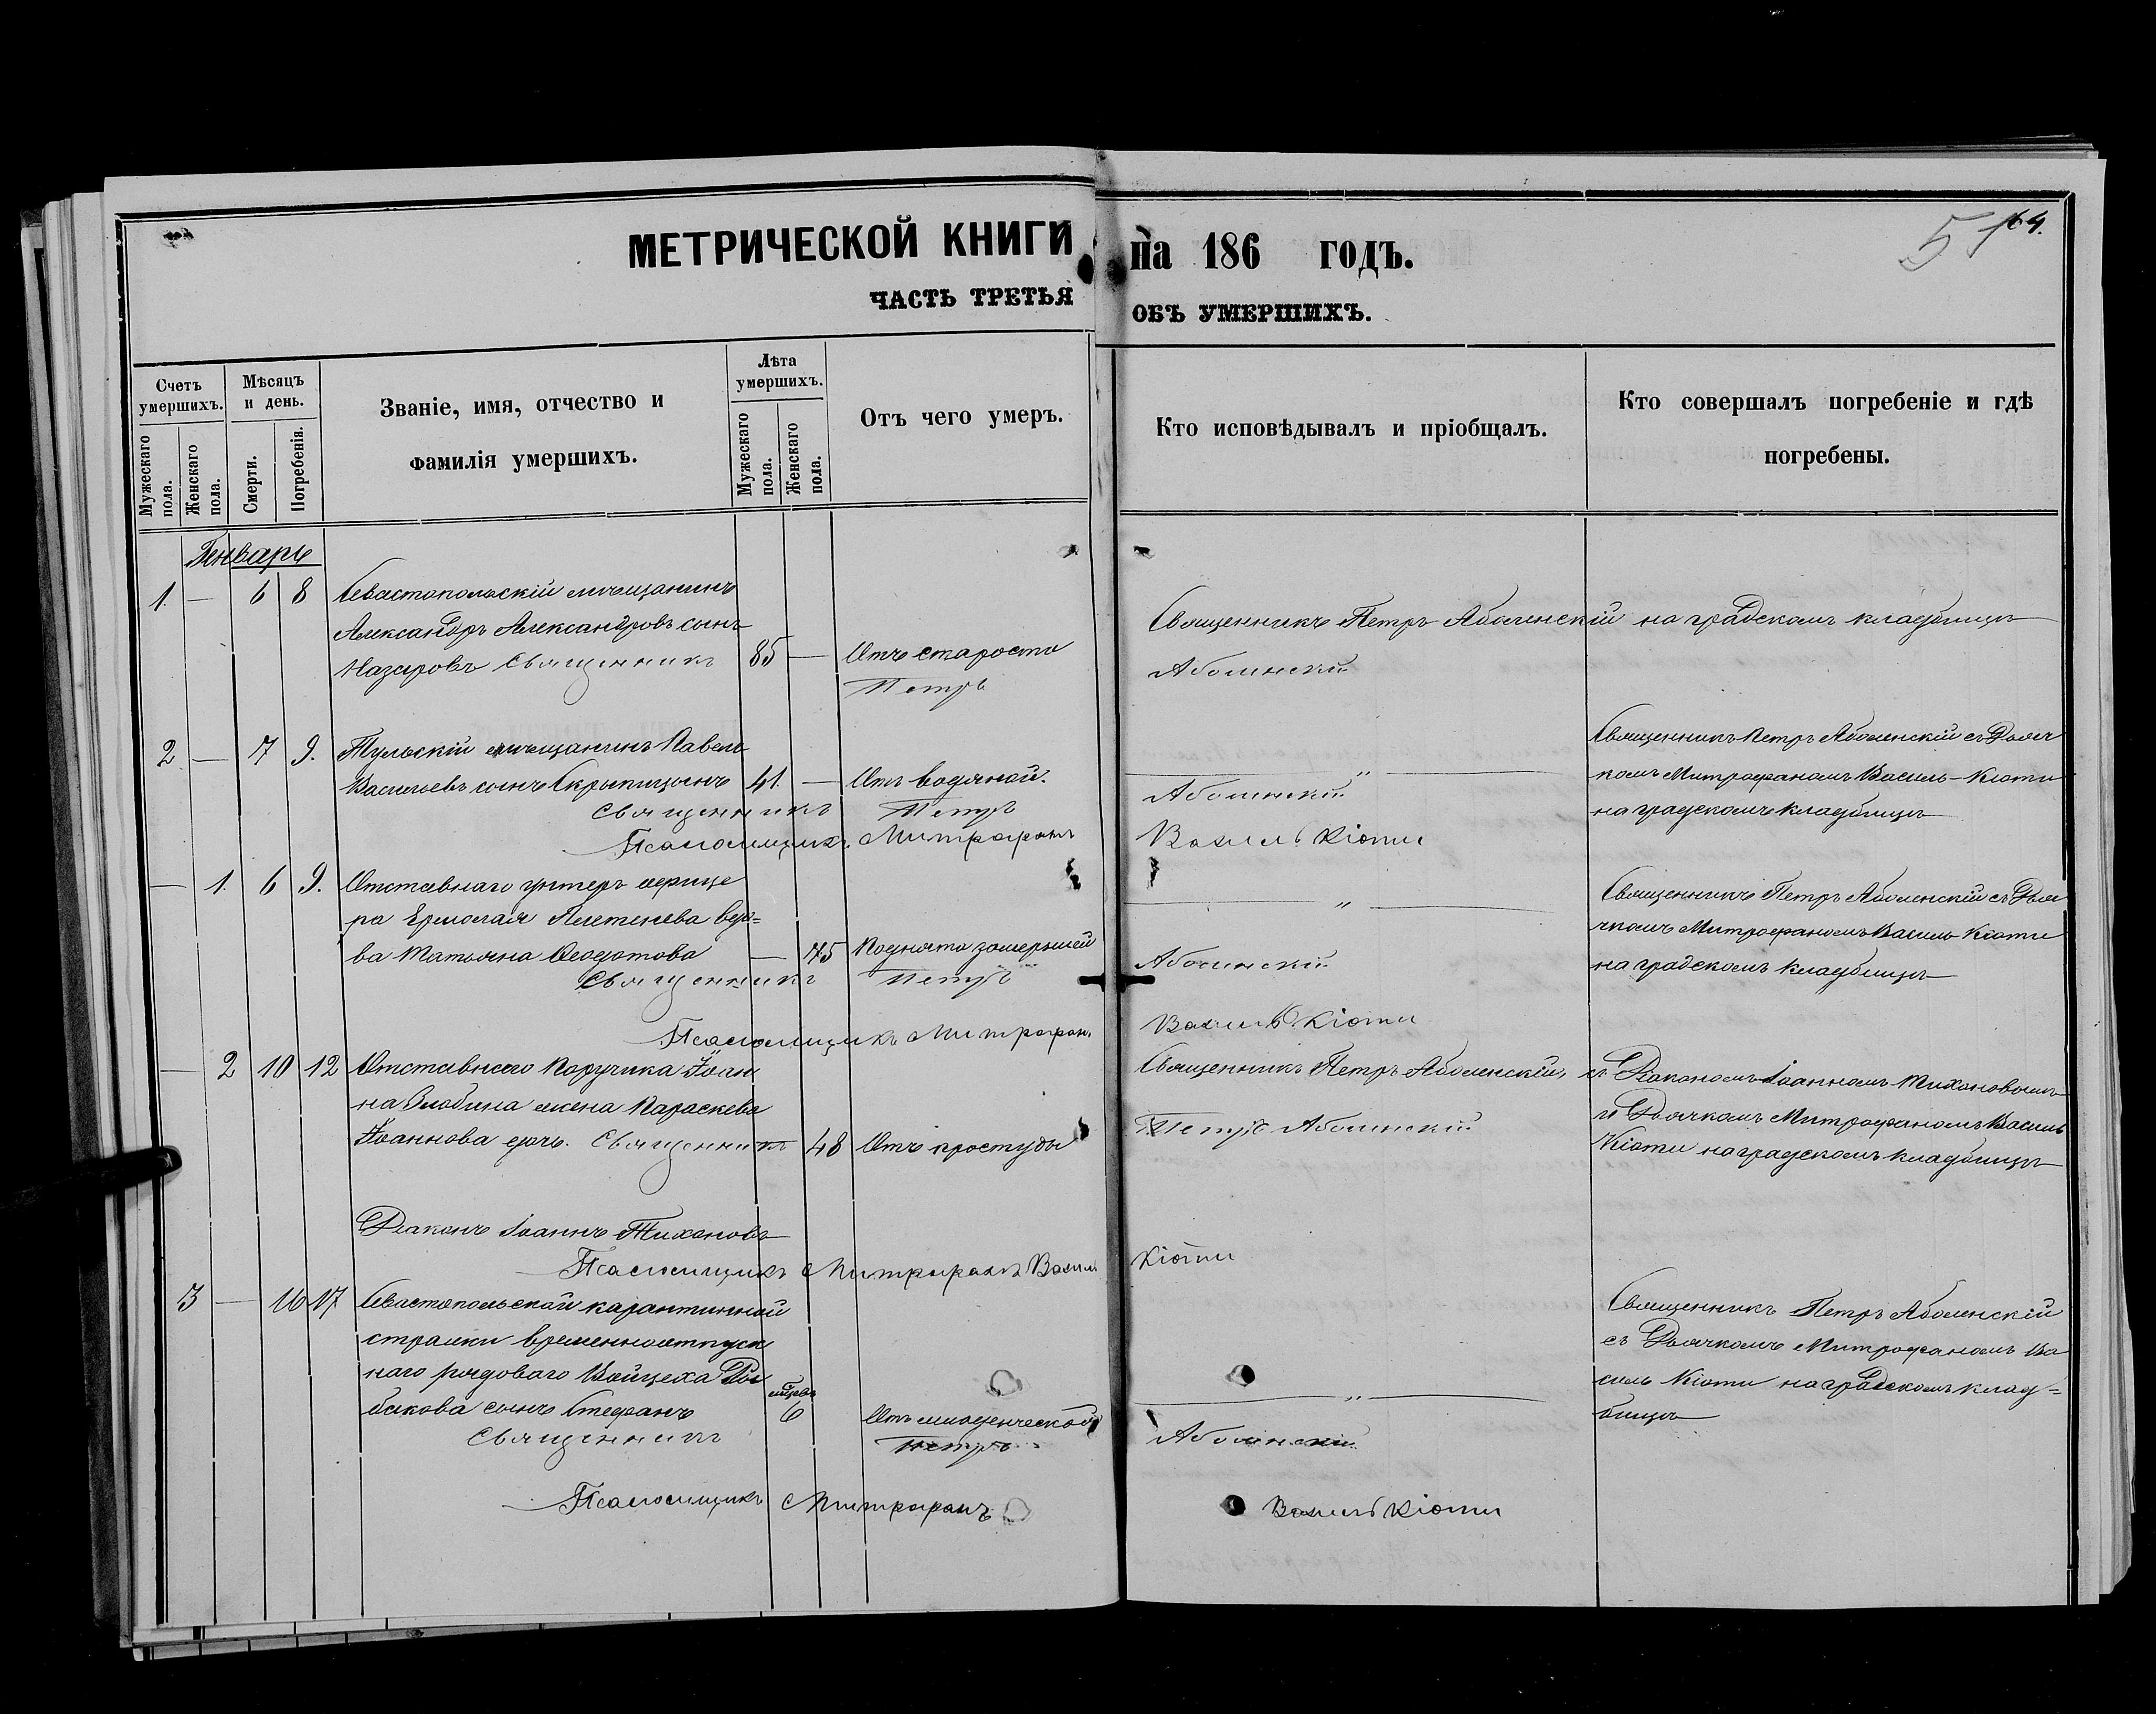 МЕТРИЧЕСКОЙ КНИГИ на 186 годъ.
ЧАСТЬ ТРЕТЬЯ ОБЪ УМЕРШИХЪ.
164.
Счетъ умершихъ.
Мужескаго пола.
Женскаго пола.
Мѣсяцъ и день.
Смерти.
Погребенія.
Званіе, имя, отчество и
фамилія умершихъ.
Лѣта умершихъ.
Мужескаго пола.
Женскаго пола.
Отъ чего умеръ.
Кто исповѣдывалъ и пріобщалъ.
Кто совершалъ погребеніе и гдѣ
погребены.
Генварь
1. — 6 8 Севастопольскій мѣщанинъ
Александръ Александровъ сынъ
Назаровъ 85 — Отъ старости
Священникъ Петръ Аболенскій на градскомъ кладбищѣ
Священникъ Петръ Аболинскій
2. — 7 9. Тульскій мѣщанинъ Павелъ
Васильевъ сынъ Скрыпицынъ 41. — Отъ водяной.
— „ —
Священникъ Петръ Аболенскій съ Дьяч
комъ Митрофаномъ Василь-Кіоти
на градскомъ кладбищѣ
Священникъ Петръ Аболинскій
Псаломщикъ Митрофанъ Василь Кіоти
— 1. 6 9. Отставнаго унтеръ офице
ра Ермолая Плетенева вдо=
ва Татьяна Феодотова — 75 Поднята замершей
— „ —
Священникъ Петръ Аболенскій съ Дья
чкомъ Митрофаномъ Василь Кіоти
на градскомъ кладбищѣ
Священникъ Петръ Аболинскій
Псаломщикъ Митрофанъ Василь Кіоти
— 2 10 12 Отставнаго Поручика Іоан
на Злобина жена Параскева
Іоаннова дочь. 48 Отъ простуды
Священникъ Петръ Аболенскій, съ Діакономъ Іоанномъ Тихоновымъ
и Дьячкомъ Митрофаномъ Василь
Кіоти на градскомъ кладбищѣ
Священникъ Петръ Аболинскій
Діаконъ Іоаннъ Тихоновъ
Псаломщикъ Митрофанъ Василь Кіоти
3 — 16 17 Севастопольской карантинной
стражи временноотпуск
наго рядоваго Войцеха
бакова сынъ Стефанъ 6 Отъ младенческой
— „ —
Священникъ Петръ Аболенскій
съ Дьячкомъ Митрофаномъ Ва
силь Кіоти на градскомъ клад=
бищѣ
Священникъ Петръ Аболинскій
Псаломщикъ Митрофанъ Василь Кіоти